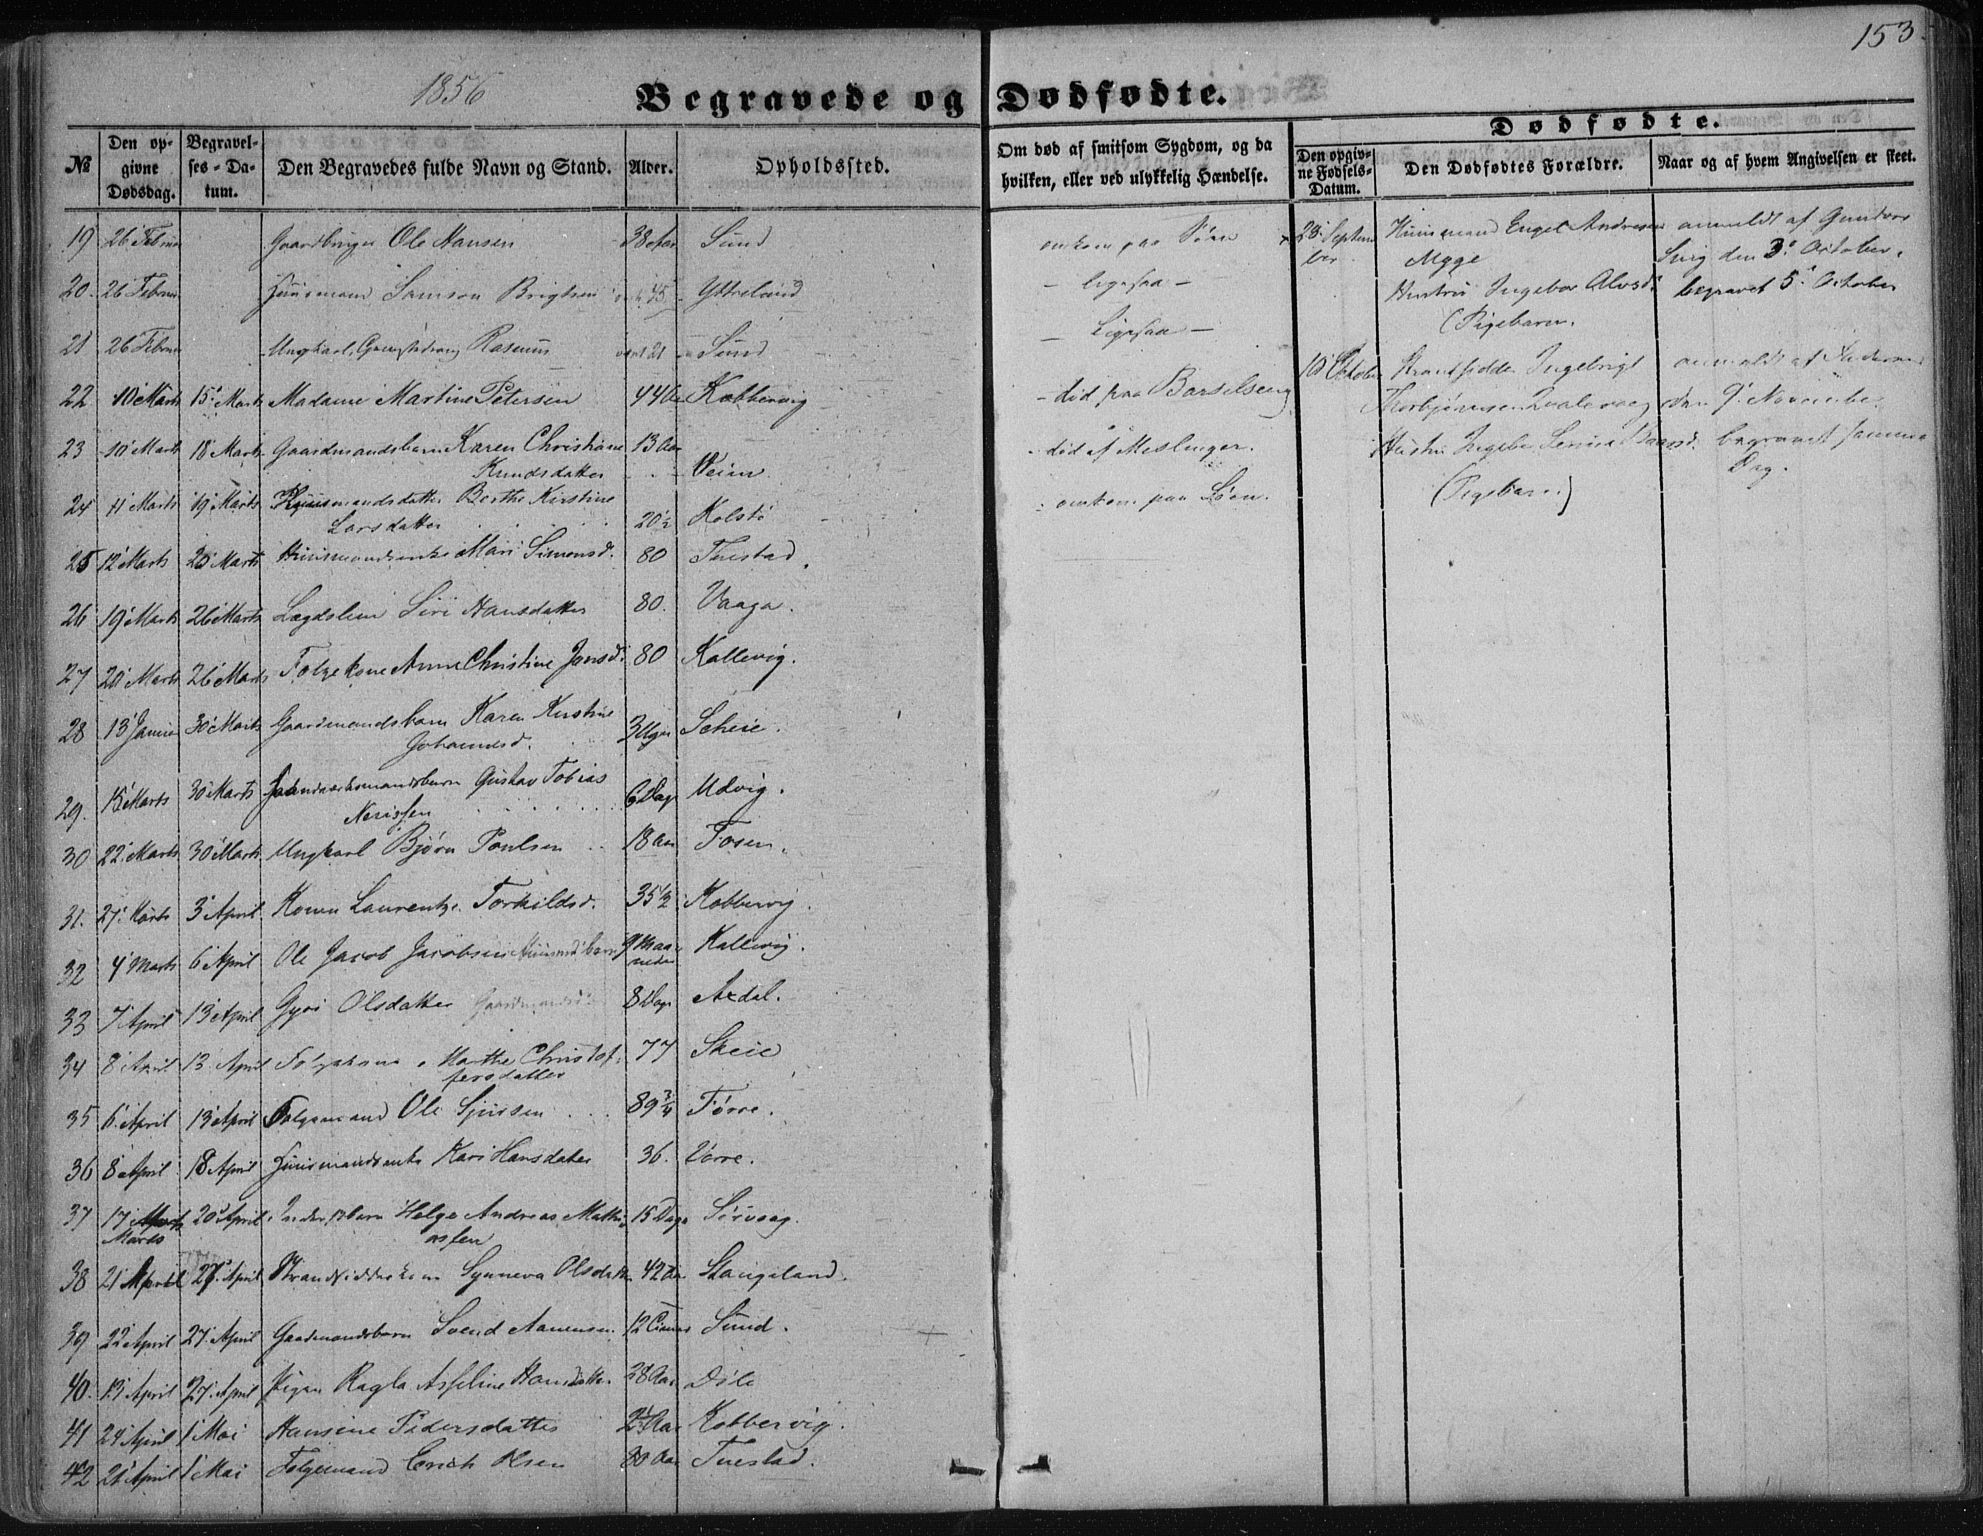 153
1856
Begravede og Dødfødte.
Dødfødte.
№
Den op-
givne
Dødsdag.
Begravel-
ses-Da-
tum.
Den Begravedes fulde Navn og Stand.
Alder.
Opholdssted.
Om død af smitsom Sygdom, og da
hvilken, eller ved ulykkelig Hændelse.
Den opgiv-
ne Fødsels-
Datum.
Den Dødfødtes Forældre.
Naar og af hvem Angivelsen er skeet.
19 26 Febru Gaardbruger Ole Hansen 38 Aar Sund omkom paa Søen
20. 26 Febru Huusmand Samson Brigtsen 45 Ytreland – ligesaa –
21 26 Febru Ungkarl Rasmus 21 Sund – Ligesaa –
22 10 Marts 15 Marts Madame Martine Petersen 44 Aar Kobbervig – död paa Barselseng
23 10 Marts 18 Marts Gaardmandsbarn Karen Christiane 13 Aar
Knudsdatter Veim död af Meslinger.
24 11 Marts 19 Marts Huusmandsdatter Berthe Kirstine
Larsdatter 20½ Kolstø omkom paa Söen.
25 12 Marts 25 Marts Huusmandsenke Mari Simonsd. 80 Tuestad
26 19 Marts 26 Marts Lægdslem Siri Hansdatter 80. Vaaga.
27 20 Marts 26 Marts Folgekone Anne Christine Jonsd. 80 Kallevig.
28 13 Janua 30 Marts Gaardmandsbarn Karen Kirstine
Johannesd. 3 Uger Scheie.
29. 15 Marts 30 Marts Gustav Tobias
6 Dage Udvig.
30 22 Marts 30 Marts Ungkarl Bjørn Poulsen 18 Aar Fosen.
31. 27 Marts 3 April Konen Laurentze Torkildsd. 35½ Kobbervig.
32 4 Marts 6 April Ole Jacob Jacobsen Huusmdsbarn 9 Maa-
neder Kallevig.
33 7 April 13 April Gyri Olsdatter Gaardmandsd. 8 Dage Axdal.
34 8 April 13 April Folgekone Marthe Christof-
fersdatter 77 Skeie
35 6 April 13 April Folgemand Ole Sjursen 89¾ Førre.
36 8 April 18 April Huusmandsenke Kari Hansdatter 36. Vorre.
37 17 Marts 20 April Inderstbarn Helge Andreas Mathi-
Marts assen 15 Dage Sörvaag.
38 21 April 27 April Strandsidderkone Synneva Olsdatter 42 Aar Stangeland.
39 22 April 27 April Gaardmandsbarn Svend Aamensen 12 Sund.
40. 13 April 27 April Pigen Ragla Asseline Hansdatter 28 Aar Døle
41 24 April 1 Mai Hansine Pedersdatter Aar Kobbervig.
42 21 April 1 Mai Folgemand Erich Olsen 80 Aar Tuestad.
28 Septem-
ber
Huusmand Engel Andresen
Mygge
Hustru Ingebor Olvsd.
(Pigebarn.
anmeldt af Gunvor
den 3 October,
begravet 5 October
10 October Strandsidder Ingebrigt
Thorbjörnsen
Hustru
(Pigebarn)
anmeldt af
den 9 November
begravet samme
Dag.